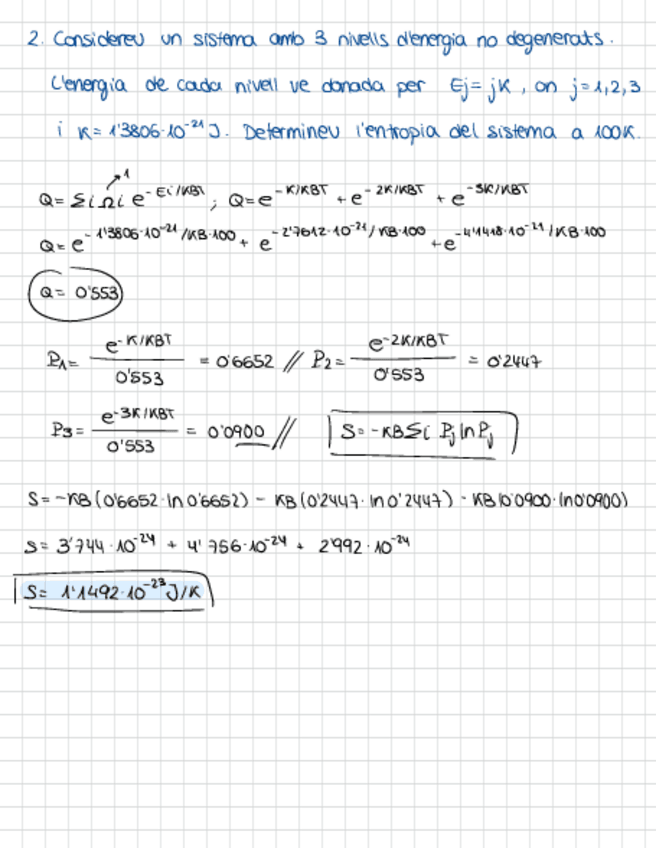 2. Considereu un sistema amb 3 nivells d'energia no degenerats.
L'energia de cada nivell ve donada per Ej = jK, on j = 1,2,3
i K = 1'3806·10⁻²¹ J. Determineu l'entropia del sistema a 100K.
1
Q = Σi Ωi e^-Ei/KBT ; Q = e^-K/KBT + e^-2K/KBT + e^-3K/KBT
Q = e^-1'3806·10⁻²¹/KB·100 + e^-2'7612·10⁻²¹/KB·100 + e^-4'1418·10⁻²¹/KB·100
Q = 0'553
P1 = e^-K/KBT / 0'553 = 0'6652 // P2 = e^-2K/KBT / 0'553 = 0'2447
P3 = e^-3K/KBT / 0'553 = 0'0900 // S = -KB Σi Pj ln Pj
S = -KB (0'6652 · ln 0'6652) - KB (0'2447 · ln 0'2447) - KB (0'0900 · ln 0'0900)
S = 3'744·10⁻²⁴ + 4'756·10⁻²⁴ + 2'992·10⁻²⁴
S = 1'1492·10⁻²³ J/K